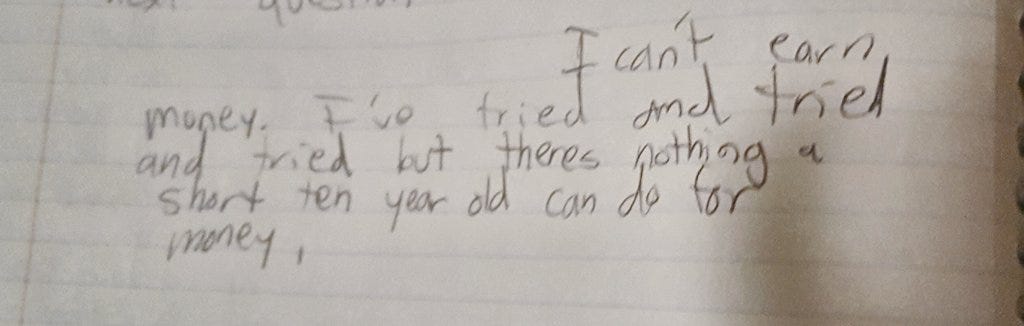 next question
I can't earn
money. I've tried and tried
and tried but theres nothing a
short ten year old can do for
money,